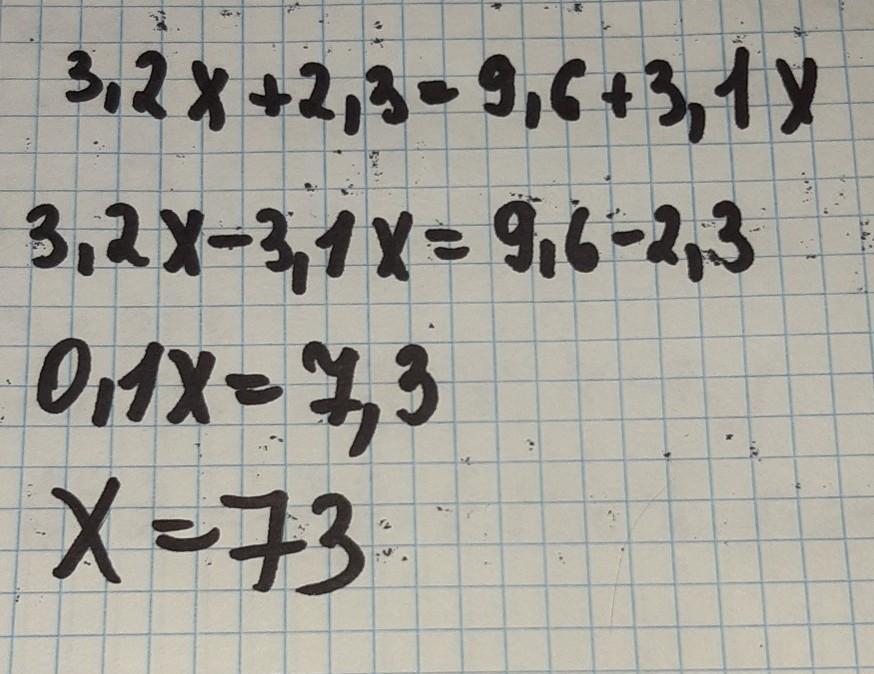 3,2x+2,3=9,6+3,1x
3,2x-3,1x=9,6-2,3
0,1x=7,3
x=73